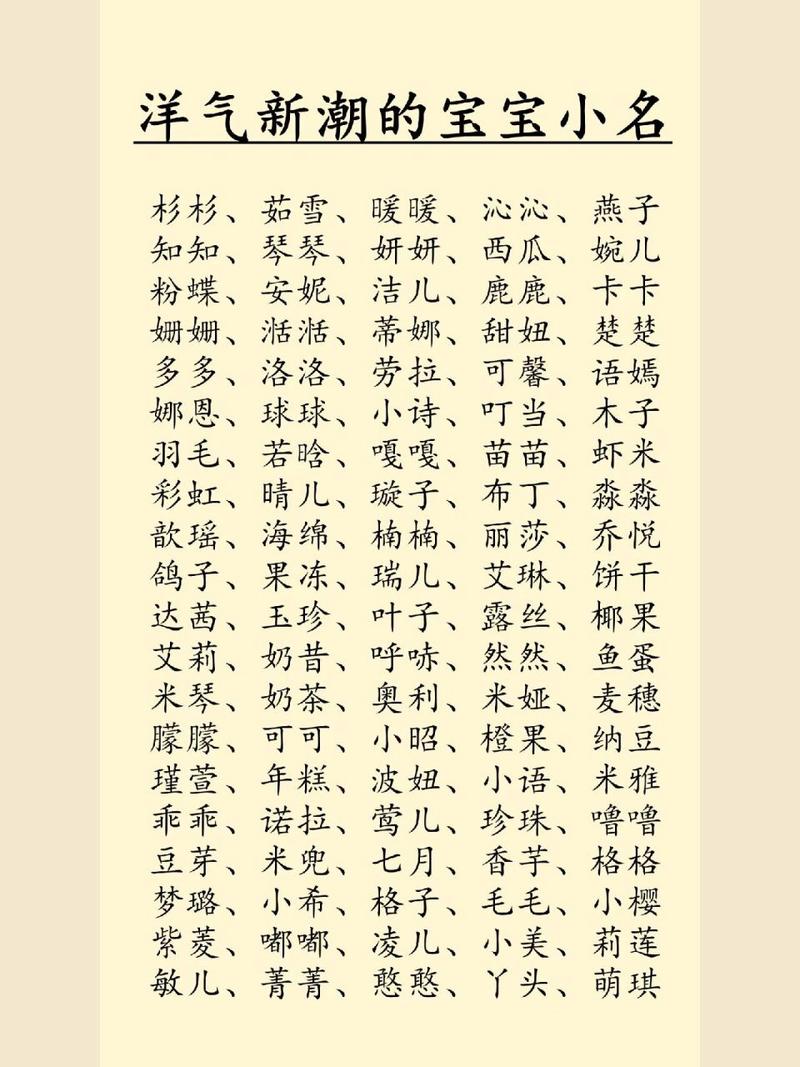 洋气新潮的宝宝小名
杉杉、茹雪、暖暖、沁沁、燕子
知知、琴琴、妍妍、西瓜、婉儿
粉蝶、安妮、洁儿、鹿鹿、卡卡
姗姗、湉湉、蒂娜、甜妞、楚楚
多多、洛洛、劳拉、可馨、语嫣
娜恩、球球、小诗、叮当、木子
羽毛、若晗、嘎嘎、苗苗、虾米
彩虹、晴儿、璇子、布丁、淼淼
歆瑶、海绵、楠楠、丽莎、乔悦
鸽子、果冻、瑞儿、艾琳、饼干
达茜、玉珍、叶子、露丝、椰果
艾莉、奶昔、呼哧、然然、鱼蛋
米琴、奶茶、奥利、米娅、麦穗
朦朦、可可、小昭、橙果、纳豆
瑾萱、年糕、波妞、小语、米雅
乖乖、诺拉、莺儿、珍珠、噜噜
豆芽、米兜、七月、香芋、格格
梦璐、小希、格子、毛毛、小樱
紫菱、嘟嘟、凌儿、小美、莉莲
敏儿、菁菁、憨憨、丫头、萌琪